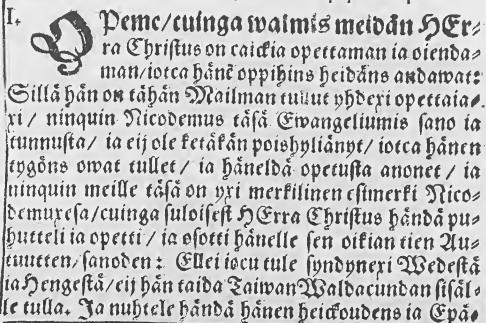 I.
OPeme/cuinga walmis meidän HErra
ra Christus on caickia opettaman ia oienda-
man/iotca hänē oppihins heidäns andawat:
Sillä hän on tähän Mailman tullut yhdexi opettaia-
xi / ninquin Nicodemus täsä Ewangeliumis sano ia
tunnusta/ ia eij ole ketäkän poishyliänyt/ iotca hänen
tygöns owat tullet/ ia häneldä opetusta anonet / ia
ninquin meille täsä on yxi merkilinen esimerki Nico-
demuxesa/cuinga suloisest HErra Christus händä pu-
hutteli ia opetti/ ia osotti hänelle sen oikian tien Au-
tuutten/sanoden: Ellei iocu tule syndynexi Wedestä
ia Hengestä/eij hän taida Taiwan Waldacundan sisäl-
le tulla. Ja nuhtele händä hänen heickoudens ia Epä-